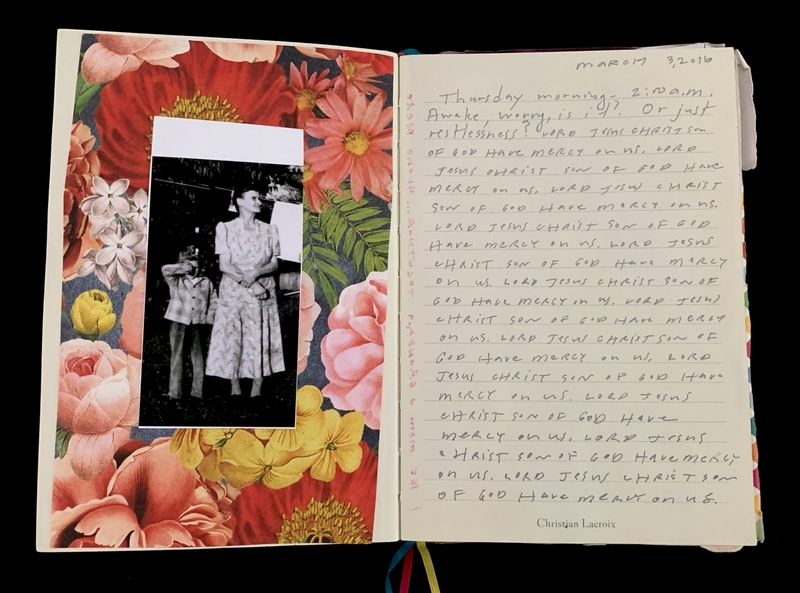 MARCH 3, 2016
Thursday morning - 2:00 a.m.
Awake, worry, is it? Or just
restlessness? LORD JESUS CHRIST SON
OF GOD HAVE MERCY ON US. LORD
JESUS CHRIST SON OF GOD HAVE
MERCY ON US. LORD JESUS CHRIST
SON OF GOD HAVE MERCY ON US.
LORD JESUS CHRIST SON OF GOD
HAVE MERCY ON US. LORD JESUS
CHRIST SON OF GOD HAVE MERCY
ON US. LORD JESUS CHRIST SON OF
GOD HAVE MERCY ON US. LORD JESUS
CHRIST SON OF GOD HAVE MERCY
ON US. LORD JESUS CHRIST SON OF
GOD HAVE MERCY ON US. LORD
JESUS CHRIST SON OF GOD HAVE
MERCY ON US. LORD JESUS
CHRIST SON OF GOD HAVE
MERCY ON US. LORD JESUS
CHRIST SON OF GOD HAVE MERCY
ON US. LORD JESUS CHRIST SON
OF GOD HAVE MERCY ON US.
Christian Lacroix